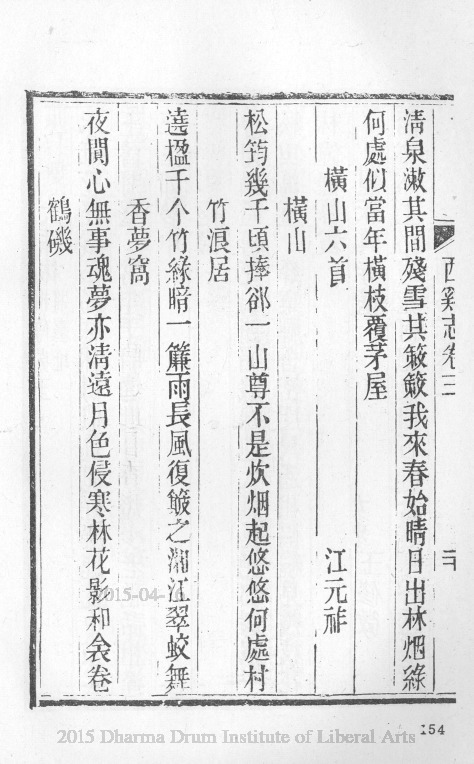 西谿志卷
清泉漱其間殘雪其我來春始晴日出林烟綠
何處似當年橫枝覆茅屋
橫山六首 江元祚
橫山
松筠幾千頃捧郤一山尊不是炊烟起悠悠何處村
竹浪居
遶楹千个竹綠暗一簾雨長風復簸之湘江翠蛟舞
香夢窩
夜閒心無事魂夢亦清遠月色侵寒林花影和衾卷
鶴磯
154
2015 Dharma Drum Institute of Liberal Arts